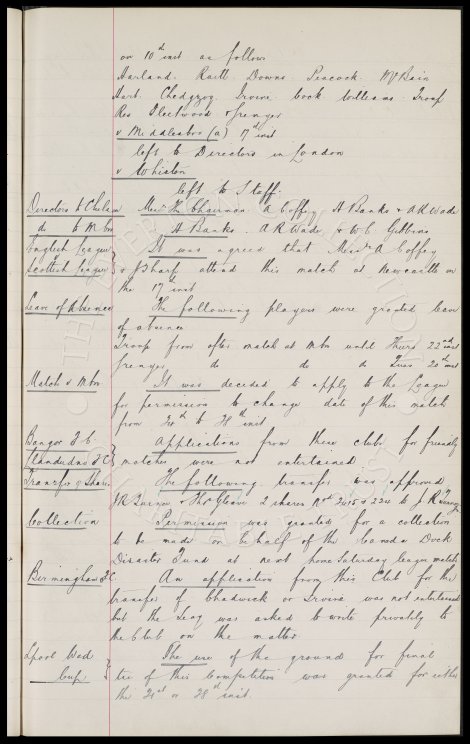 on 10th inst as follows
Harland. Raitt. Downs. Peacock. McBain
Hart. Chedgzoy. Irvine. Cock Williams. Troup
Res Fleetwood & Grenyer
v Middlesbro (a) 17th inst
left to Directors in London
v Whiston
left to Staff.
Directors to Chelsea Messrs The Chairman A Coffey A Banks & A R Wade
do to M'bro A Banks. A R Wade & W C Gibbins
English League It was agreed that Messrs A Coffey
Scottish League & J Sharp attend this match at Newcastle on
the 17th inst
Leave of Absence The following players were granted leave
of absence
Troup from after match at M'bro until Thurs 22nd inst
Grenyer do do do Tues 20th inst
Match v M'bro It was decided to apply to the League
for permission to change date of this match
from 24th to 28th inst
Bangor F C Applications from these clubs for friendly
Llandudno F C matches were not entertained
Transfer of Shares The following transfer was approved
2 shares Nos to J R
Collection Permission was granted for a collection
to be made on behalf of the Dock
Disaster Fund at next home Saturday league match
Birmingham F C An application from this Club for the
transfer of Chadwick or Irvine was not entertained
but the Secy was asked to write privately to
the Club on the matter
Lpool Wed The use of the ground for final
Cup tie of this Competition was granted for either
the 21st or 28th inst